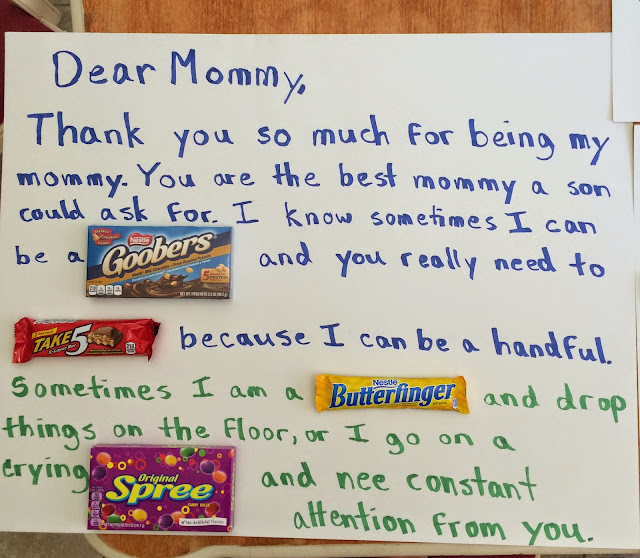 Dear Mommy,
Thank you so much for being my
mommy. You are the best mommy a son
could ask for. I know sometimes I can
be a Nestlé Goobers and you really need to
TAKE 5 because I can be a handful.
Sometimes I am a Nestlé Butterfinger and drop
things on the floor, or I go on a
crying Original Spree and nee constant
attention from you.